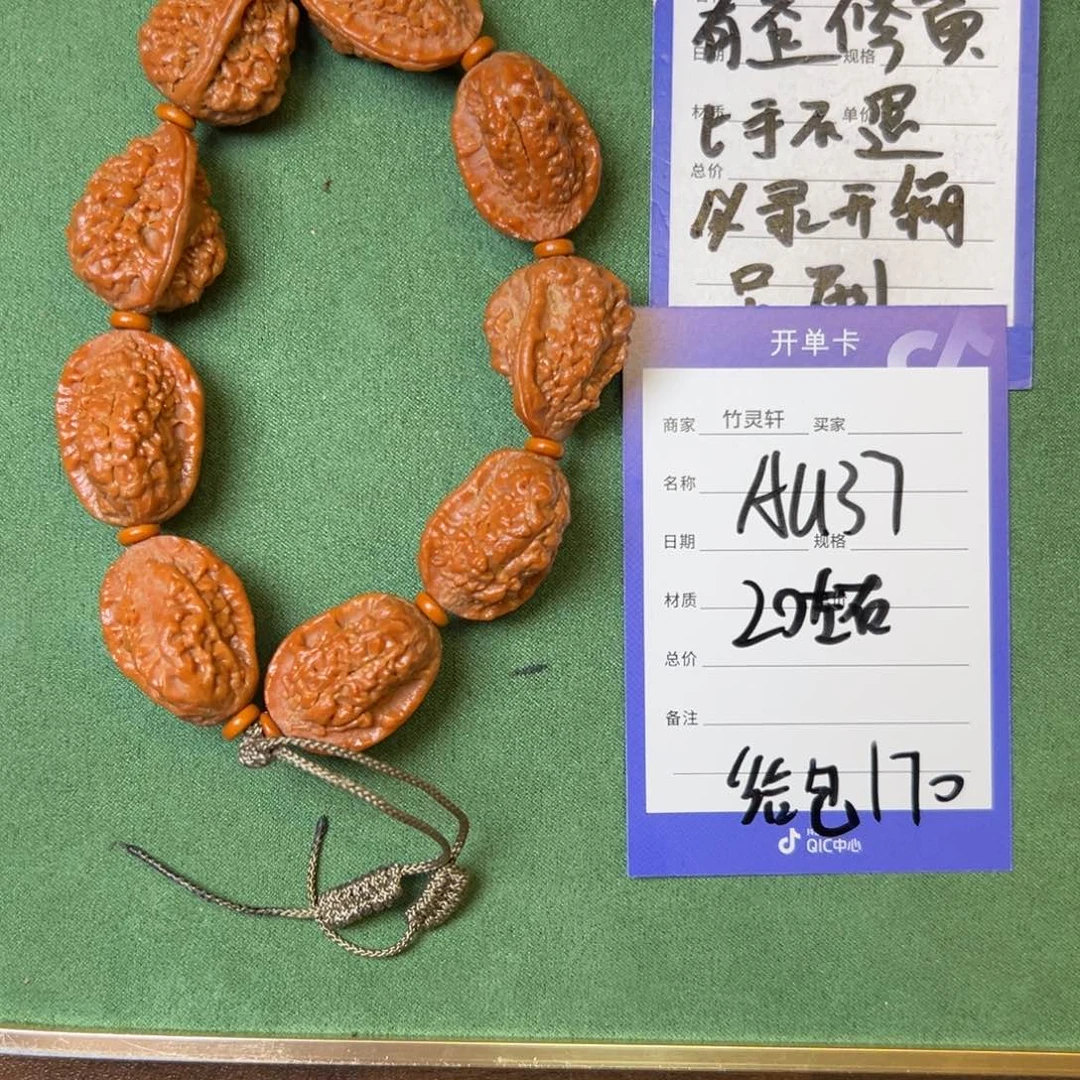 有歪 修 黄
日期 规格
上手不退
材质 单价
总价
以录开绳
开单卡
商家 竹灵轩 买家
名称 AU37
日期 规格
材质 20左右
总价
备注
给包170
QIC中心